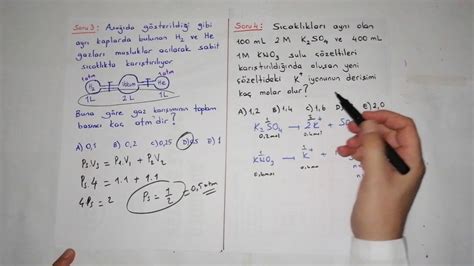 Soru 3: Aşağıda gösterildiği gibi
ayrı kaplarda bulunan H2 ve He
gazları musluklar açılarak sabit
sıcaklıkta karıştırılıyor.
1atm
1atm
H2
He
1L 2L 1L
Buna göre gaz karışımının toplam
basıncı kaç atm'dir?
A) 0,1 B) 0,2 C) 0,25 D) 0,5 E) 1
Ps.Vs = P1V1 + P2V2
Ps.4 = 1.1 + 1.1
4Ps = 2 Ps = 1/2 = 0,5 atm
Soru 4: Sıcaklıkları aynı olan
100 mL 2M K2SO4 ve 400 mL
1M KNO3 sulu çözeltileri
karıştırıldığında oluşan yeni
çözeltideki K+ iyonunun derişimi
kaç molar olur?
A) 1,2 B) 1,4 C) 1,6 D) E) 2,0
K2SO4 → 2K+ +
0,2mol
KNO3 → K+ +